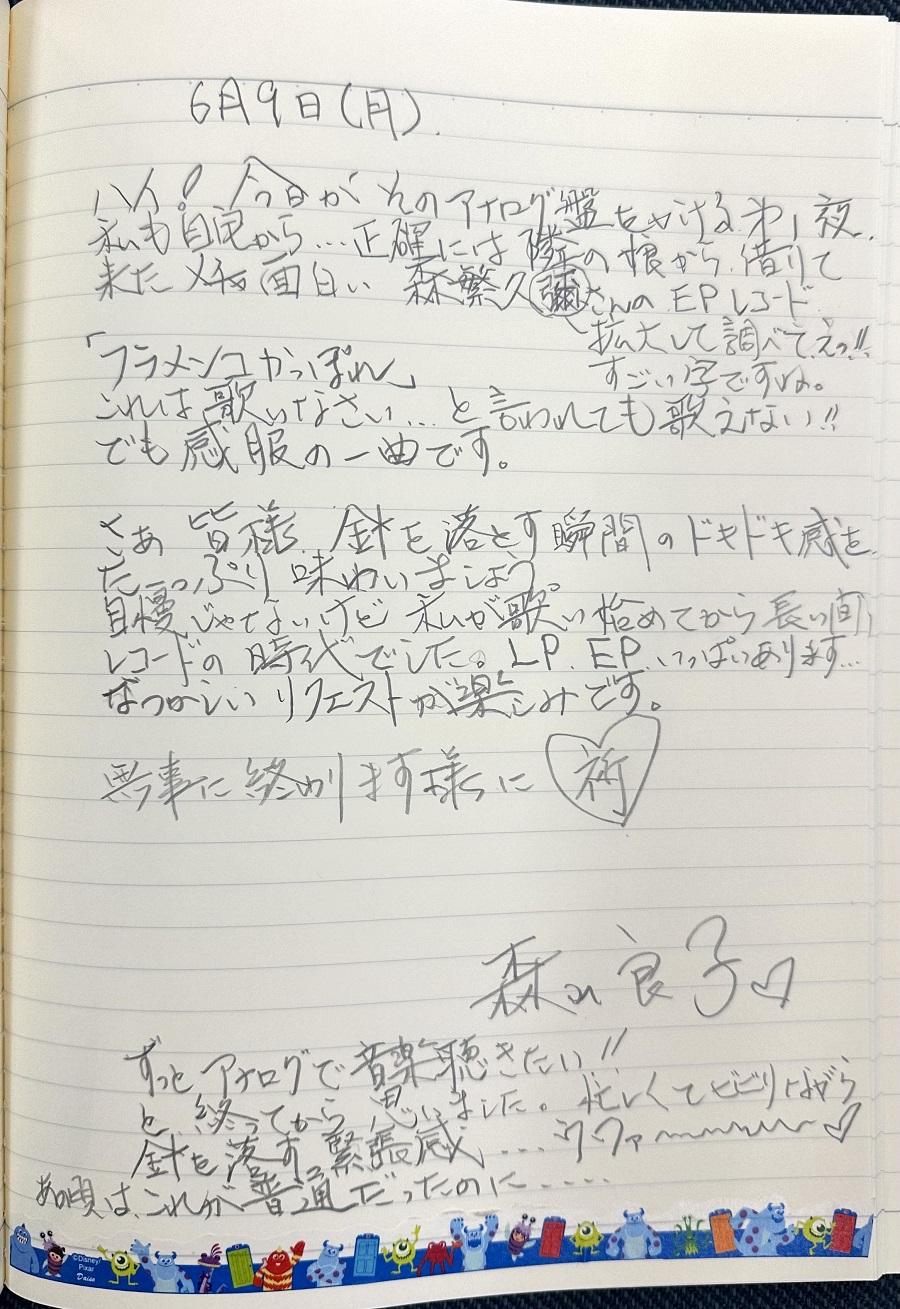 6月9日(月).
ハイ! 今日がそのアナログ盤をかける夜.
私も自宅から...正確には隣の娘から借りて
来たメチャ面白い 森繁久彌さんの EPレコード
拡大して調べてえっ!!
すごい字ですね。
「フラメンコかっぽれ」
これは歌いなさい...と言われても歌えない!!
でも感服の一曲です。
さあ 皆様 針を落とす瞬間のドキドキ感を
たーっぷり味わいましょう。
自慢じゃないけど 私が歌い始めてから長い間
レコードの時代でした。LP. EP. いっぱいあります...
なつかしいリクエストが楽しみです。
無事に終わります様に 祈
森山良子♡
ずっとアナログで音楽聴きたい!!
と終ってから思いました。忙しくてビビりながら
針を落す緊張感....ウワァ〜〜〜♡
あの頃は、これが普通だったのに.....
©Disney/
Pixar
Daiso